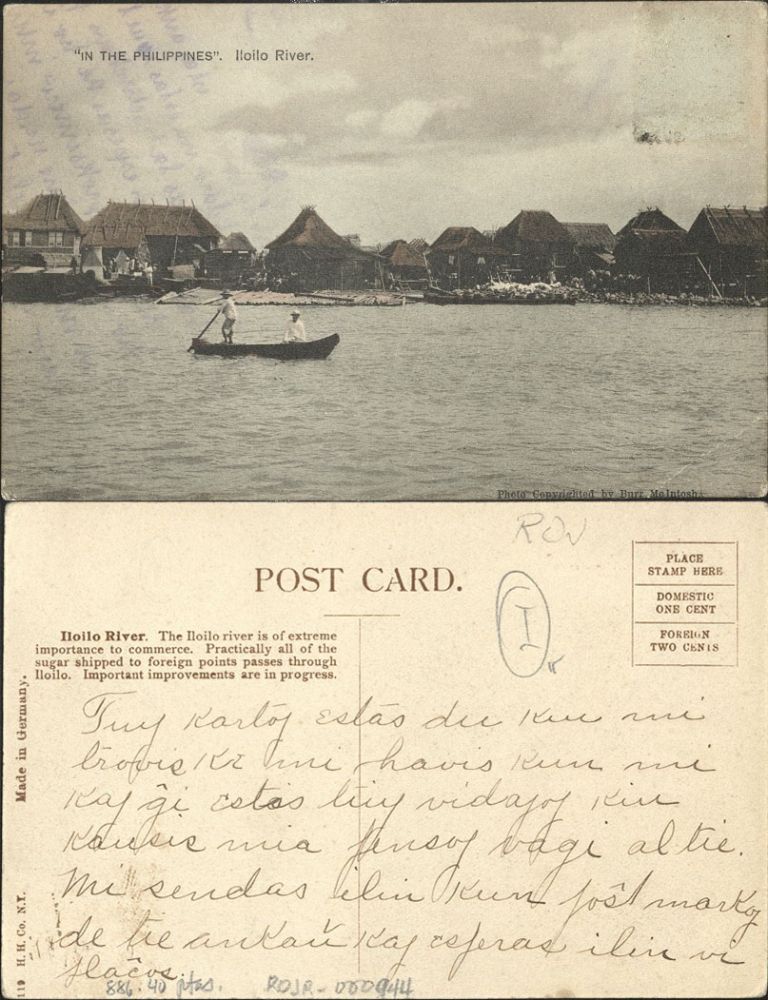 "IN THE PHILIPPINES". Iloilo River.
Photo Copyrighted by Burr McIntosh.
ROJ
POST CARD.
I
PLACE
STAMP HERE
DOMESTIC
ONE CENT
FOREIGN
TWO CENTS
Iloilo River. The Iloilo river is of extreme
importance to commerce. Practically all of the
sugar shipped to foreign points passes through
Iloilo. Important improvements are in progress.
Made in Germany.
119 H. H. Co. N.Y.
Tiuj kartoj estas du kiu mi
trovis ke mi havis kun mi
kaj ĝi estas tiuj vidajoj kiu
kausis mia pensoj vagi al tie.
Mi sendas ilin kun poŝtmarkoj
de tie ankaŭ kaj esperas ilin vi
plaĉos.
886. 40 ptas. ROJR-000944